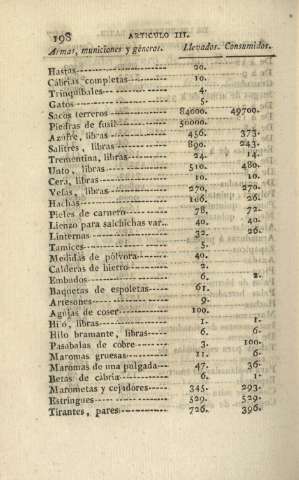 198 ARTICULO III.
Armas, municiones y géneros. Llevados. Consumidos.
Hastas 20.
Cábrias completas 10.
Trinquibales 4.
Gatos 5.
Sacos terreros 84000. 49700.
Piedras de fusil 50000.
Azufre, libras 456. 373.
Salitres, libras 890. 243.
Trementina, libras 24. 14.
Unto, libras 510. 480.
Cera, libras 10. 10.
Velas, libras 270, 270.
Hachas 106. 26.
Pieles de carnero 78, 72.
Lienzo para salchichas var.. 40. 40.
Linternas 32. 26.
Tamices 5.
Medidas de pólvora 40.
Calderas de hierro 2.
Embudos 6. 2.
Baquetas de espoletas 61.
Artesones 9.
Agujas de coser 100.
Hilo, libras 1. 1.
Hilo bramante, libras 6. 6.
Pasabalas de cobre 3. 100.
Maromas gruesas 11. 6.
Maromas de una pulgada 47. 36.
Betas de cábria 6. 1.
Marometas y cejadores 345. 293.
Estringues 529. 529.
Tirantes, pares 726. 396.